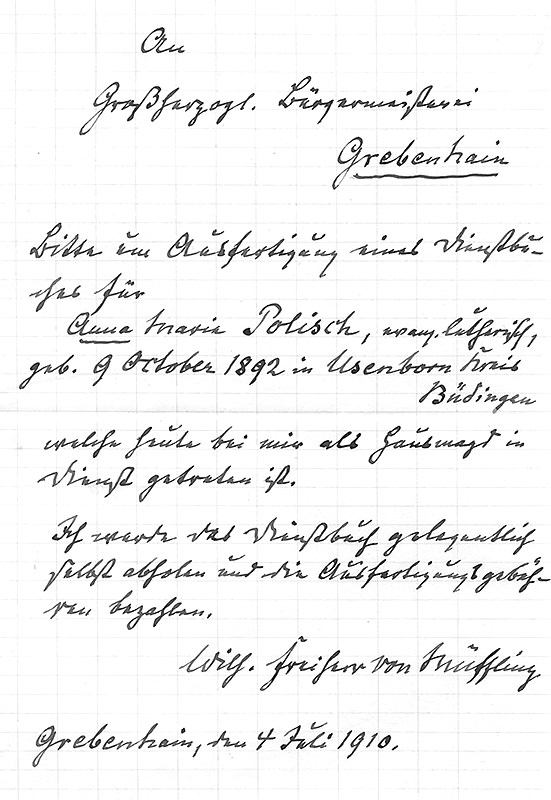 An
Großherzogl. Bürgermeisterei
Grebenhain
Bitte um Ausfertigung eines Dienstbu-
ches für
Anna Marie Polisch, evang. lutherisch,
geb. 9 October 1892 in Usenborn Kreis
Büdingen
welche heute bei mir als Hausmagd in
Dienst getreten ist.
Ich werde das Dienstbuch gelegentlich
selbst abholen und die Ausfertigungsgebüh-
ren bezahlen.
Wilh. Freiherr von Müffling
Grebenhain, den 4 Juli 1910.